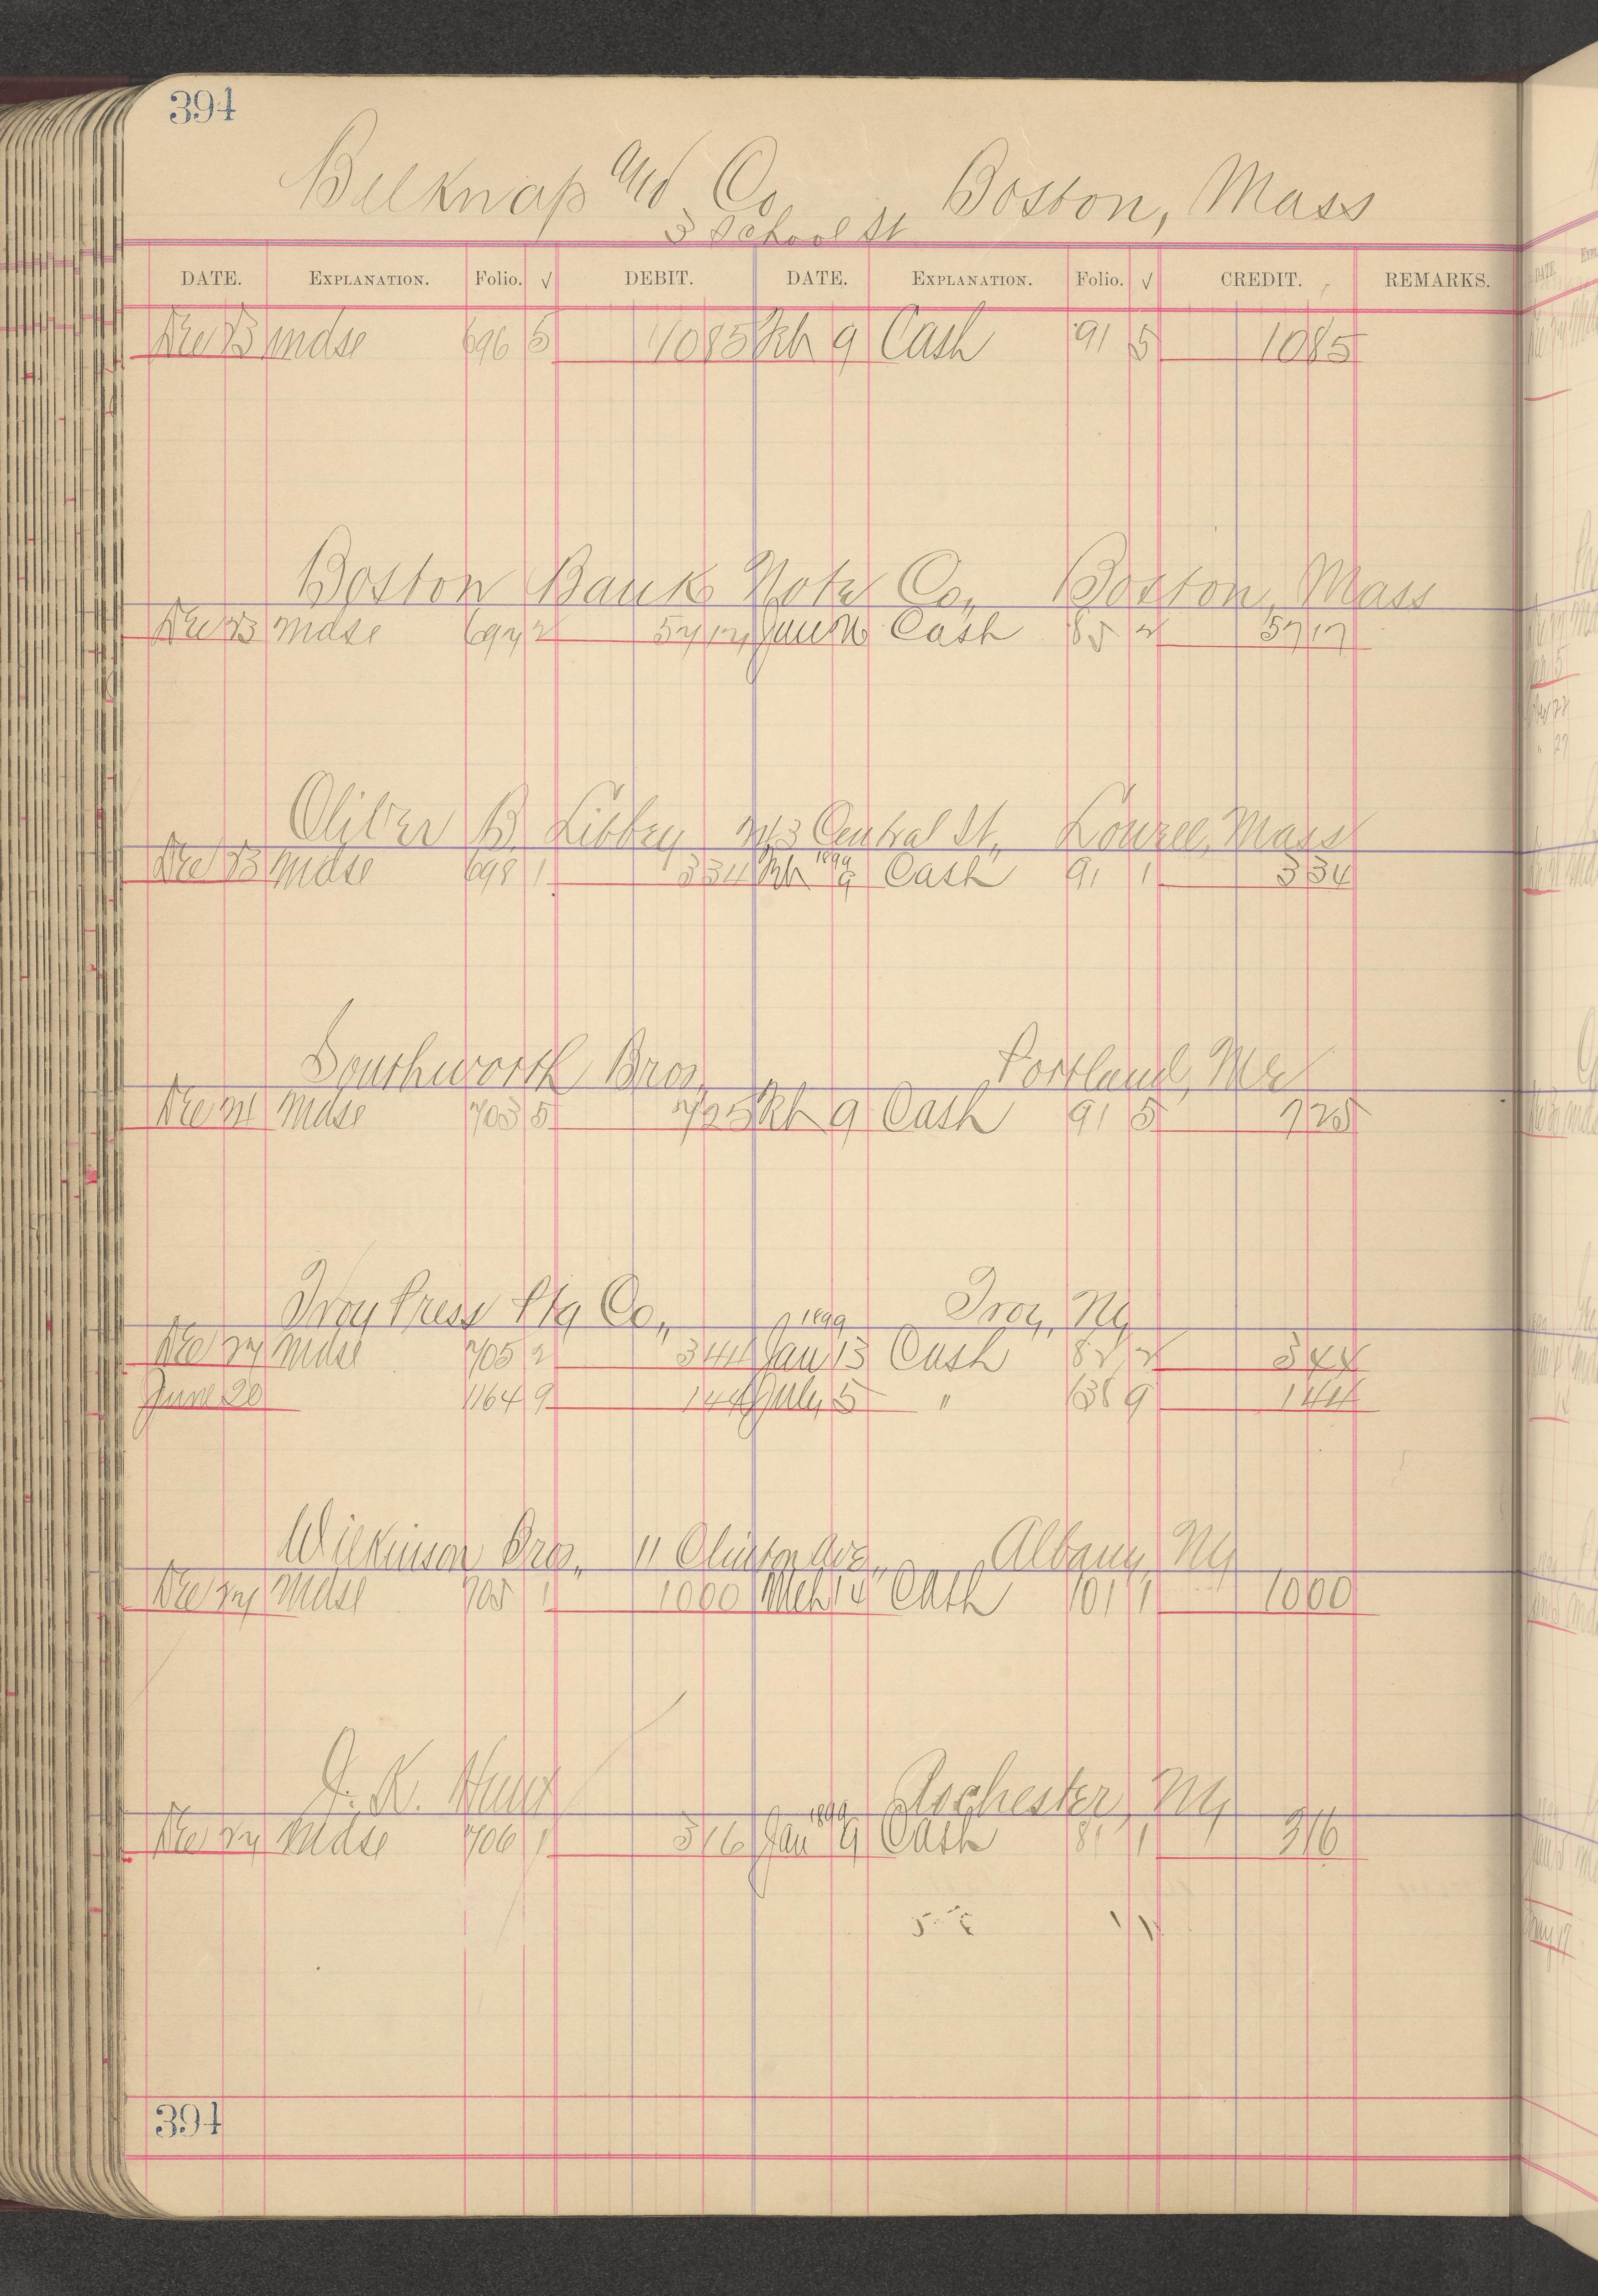 394
Belknap and Co, Boston, Mass
3 School St
DATE. EXPLANATION. Folio. √ DEBIT. DATE. EXPLANATION. Folio. √ CREDIT. REMARKS.
Dec 23 mdse 696 5 1085 Feb 9 Cash 91 5 1085
Boston Bank Note Co., Boston, Mass
Dec 23 mdse 697 2 5717 Jan Cash 85 2 5717
Oliver B. Libbey Central St., Lowell, Mass
1899
Dec 23 mdse 698 1 334 Feb 9 Cash 91 1 334
Southworth Bros, Portland, Me
Dec mdse 703 5 725 Feb 9 Cash 91 5 725
Troy Press Ptg Co., Troy, Ny
1899
Dec 27 mdse 705 2 344 Jan 13 Cash 82 2 344
June 20 1164 9 144 July 5 " 138 9 144
Wilkinson Bros., 11 Clinton Ave., Albany, Ny
Dec 27 mdse 705 1 1000 Mch 14 Cash 101 1 1000
J. K. Hunt Rochester, Ny
1899
Dec 27 mdse 706 1 316 Jan 9 Cash 81 1 316
394